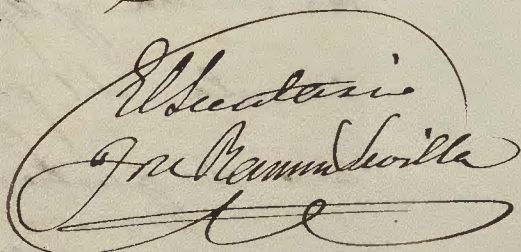 El Secretario
José Ramon Sevilla